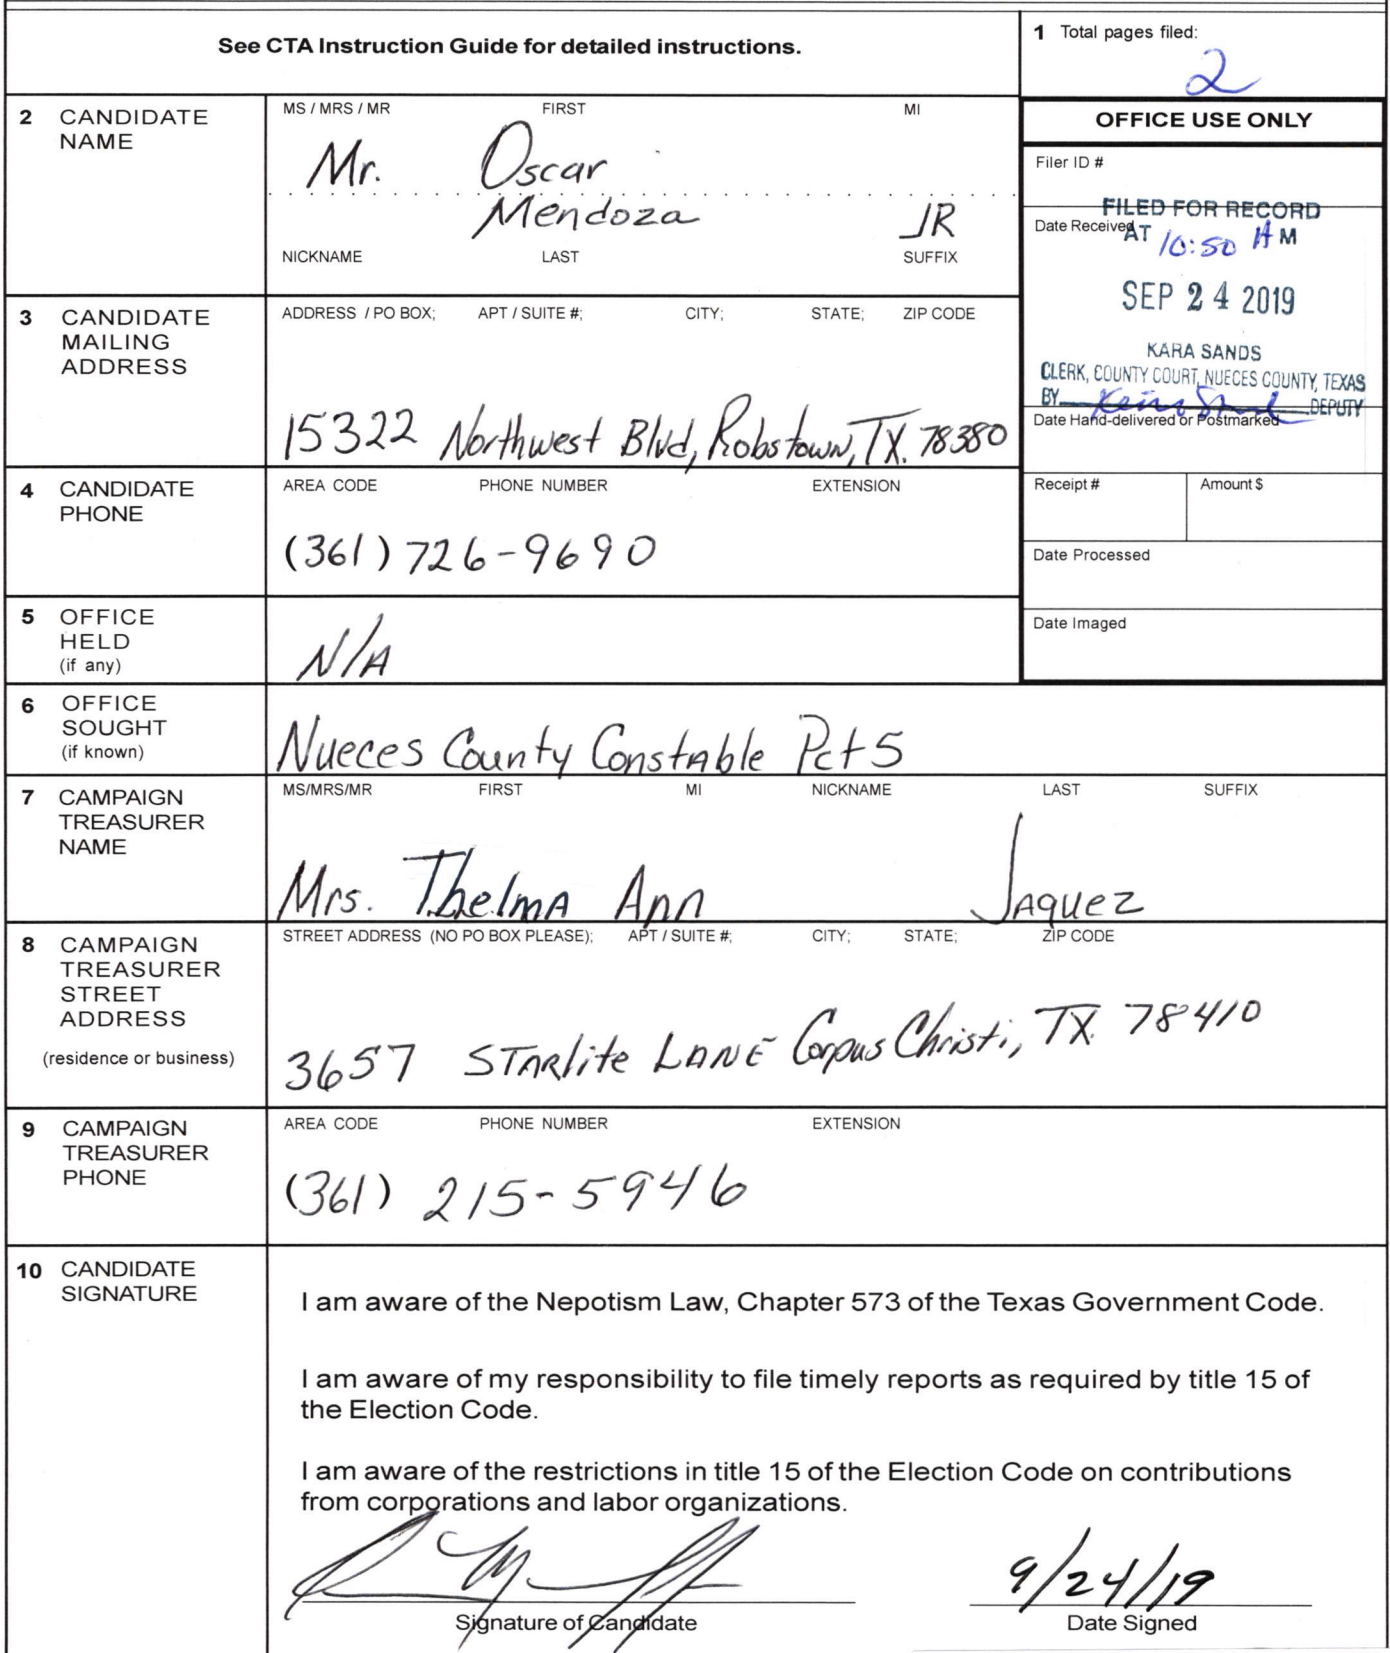 See CTA Instruction Guide for detailed instructions.
1 Total pages filed:
2
2 CANDIDATE NAME
MS / MRS / MR FIRST MI
Mr. Oscar
Mendoza JR
NICKNAME LAST SUFFIX
OFFICE USE ONLY
Filer ID #
FILED FOR RECORD
Date Received
AT 10:50 A M
SEP 24 2019
KARA SANDS
CLERK, COUNTY COURT, NUECES COUNTY, TEXAS
BY DEPUTY
Date Hand-delivered or Postmarked
Receipt # Amount $
Date Processed
Date Imaged
3 CANDIDATE MAILING ADDRESS
ADDRESS / PO BOX; APT / SUITE #; CITY; STATE; ZIP CODE
15322 Northwest Blvd, Robstown, TX. 78380
4 CANDIDATE PHONE
AREA CODE PHONE NUMBER EXTENSION
(361) 726-9690
5 OFFICE HELD (if any)
N/A
6 OFFICE SOUGHT (if known)
Nueces County Constable Pct 5
7 CAMPAIGN TREASURER NAME
MS/MRS/MR FIRST MI NICKNAME LAST SUFFIX
Mrs. Thelma Ann Jaquez
8 CAMPAIGN TREASURER STREET ADDRESS
(residence or business)
STREET ADDRESS (NO PO BOX PLEASE); APT / SUITE #; CITY; STATE; ZIP CODE
3657 Starlite Lane Corpus Christi, TX. 78410
9 CAMPAIGN TREASURER PHONE
AREA CODE PHONE NUMBER EXTENSION
(361) 215-5946
10 CANDIDATE SIGNATURE
I am aware of the Nepotism Law, Chapter 573 of the Texas Government Code.
I am aware of my responsibility to file timely reports as required by title 15 of
the Election Code.
I am aware of the restrictions in title 15 of the Election Code on contributions
from corporations and labor organizations.
9/24/19
Signature of Candidate Date Signed